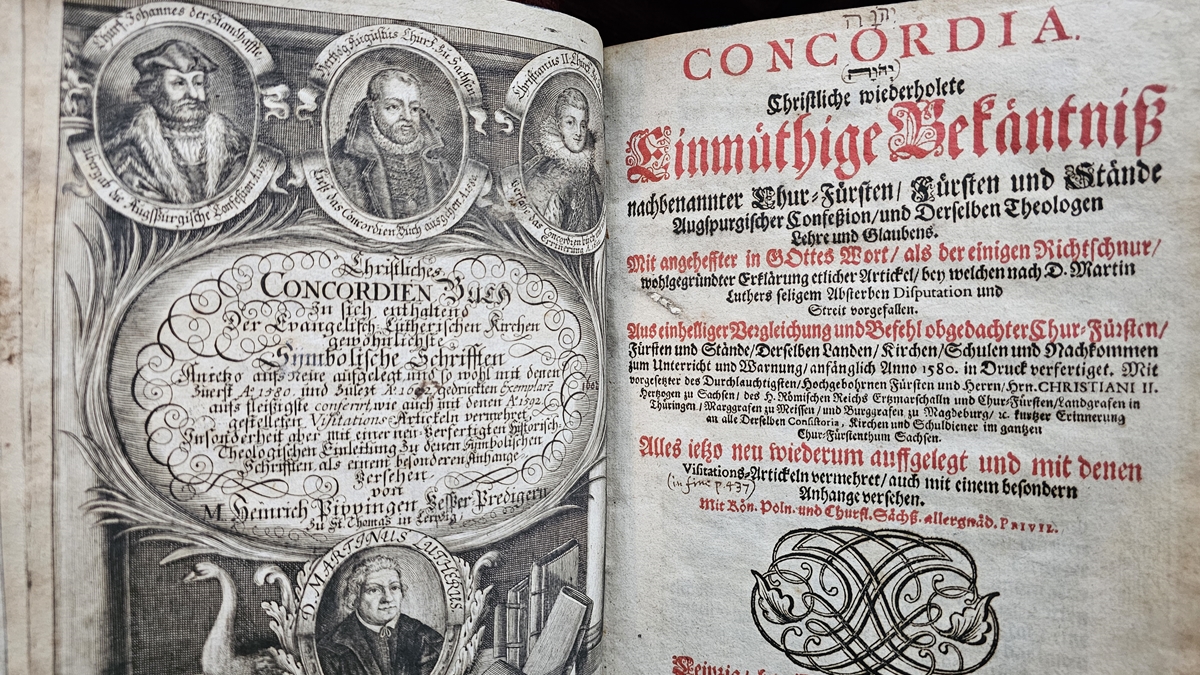 Churf. Johannes der Standhaffte.
übergab die Augspurgische Confeßion A. 1530.
Hertzog Augustus Churf. zu Sachsen
Ließ das Concordien Buch ausgehen A. 1580
Christianus II. Churf.
das Concordien buch
Erinnerung
Christliches
CONCORDIEN Buch
In sich enthaltend
Der Evangelisch-Lutherischen Kirchen
gewöhnlichste
Symbolische Schrifften
Anietzo aufs Neue aufgelegt und so wohl mit denen
Zuerst A. 1580. und Zulezt A. gedruckten Exemplarē
aufs fleißigste conferirt, wie auch mit denen A. 1592.
gestelleten Visitations Artickeln vermehret,
Insonderheit aber mit einer neu-verfertigten Historisch-
Theologischen Einleitung Zu denen Symbolischen
Schrifften als einem besonderen Anhange
Versehen
von
M. Heinrich Pippingen Vesper Predigern
Zu St. Thomas in Leipzig
D. MARTINUS LUTHERUS.
יהוה
CONCORDIA.
יהוה
Christliche wiederholete
Einmüthige Bekäntniß
nachbenannter Chur-Fürsten/ Fürsten und Stände
Augspurgischer Confeßion/und Derselben Theologen
Lehre und Glaubens.
Mit angeheffter in GOttes Wort/ als der einigen Richtschnur/
wohlgegründter Erklärung etlicher Artickel/ bey welchen nach D. Martin
Luthers seligem Absterben Disputation und
Streit vorgefallen.
Aus einhelliger Vergleichung und Befehl obgedachter Chur-Fürsten/
Fürsten und Stände/Derselben Landen/ Kirchen/ Schulen und Nachkommen
zum Unterricht und Warnung/ anfänglich Anno 1580. in Druck verfertiget. Mit
vorgesetzter des Durchlauchtigsten/ Hochgebohrnen Fürsten und Herrn/ Hrn. CHRISTIANI II.
Hertzogen zu Sachsen/ des H. Römischen Reichs Ertzmarschalln und Chur-Fürsten/ Landgrafen in
Thüringen/ Marggrafen zu Meissen/ und Burggrafen zu Magdeburg/ ꝛc. kurtzer Erinnerung
an alle Derselben Consistoria, Kirchen und Schuldiener im gantzen
Chur-Fürstenthum Sachsen.
Alles ietzo neu wiederum auffgelegt und mit denen
Visitations-Artickeln vermehret/ auch mit einem besondern
(in fine p. 437)
Anhange versehen.
Mit Kön. Poln. und Churfl. Sächß. allergnäd. PRIVIL.
Leipzig/